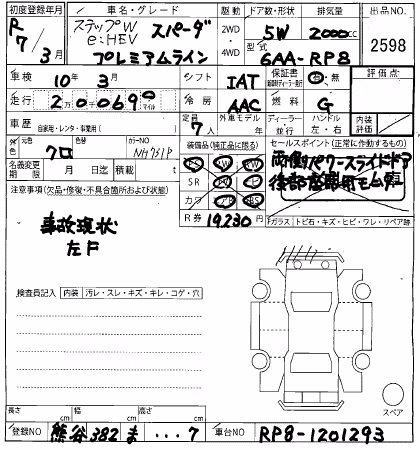 初度登録年月 車名・グレード 駆動 ドア数・形状 排気量 出品NO
R 7/3月 ステップW スパーダ 2WD 4WD 5W 2000cc 2598
e:HEV プレミアムライン 型式 6AA-RP8
車検 10年3月 シフト IAT 保証書 有・無 評価点
走行 冷房 AAC 燃料 G
車歴 自家用・レンタ・事業用( ) 定員 7人 外車モデル 年 ディーラー 並行 ハンドル 左・右 内装評価
外色 元色 クロ 色替 カラーNO NH731P 装備品(純正品に限る) セールスポイント(正常に作動するもの)
両側パワースライドドア
名義変更期限 月 日 積載 t SR
注意事項(欠品・修復・不具合箇所および状態) カワ
R券 19,230円 Fガラス トビ石・キズ・ヒビ・ワレ・リペア跡
事故現状
左F
検査員記入 内装 汚レ・スレ・キズ・キレ・コゲ・穴
スペア
長さ cm 幅 cm 高さ cm
登録NO 熊谷 382 ま ・・・7 車台NO RP8-1201293